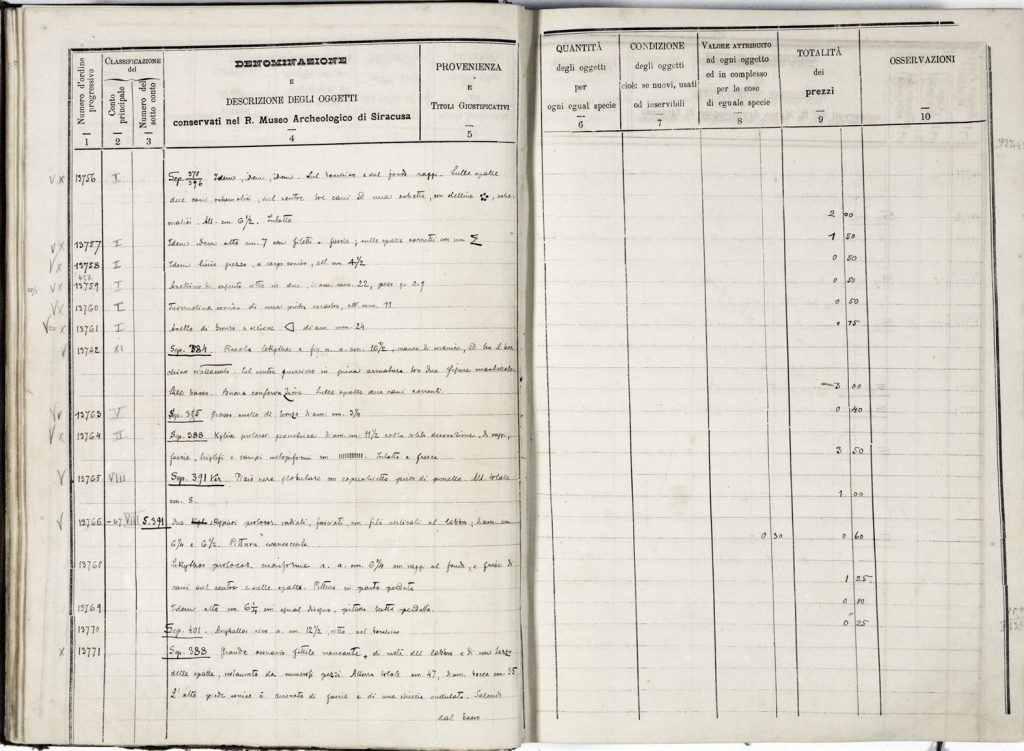 Numero d'ordine progressivo
CLASSIFICAZIONE del
Conto principale
Numero del sotto conto
DENOMINAZIONE
E
DESCRIZIONE DEGLI OGGETTI
conservati nel R. Museo Archeologico di Siracusa
PROVENIENZA
E
TITOLI GIUSTIFICATIVI
QUANTITÀ
degli oggetti
per
ogni egual specie
CONDIZIONE
degli oggetti
cioè: se nuovi, usati
od inservibili
VALORE ATTRIBUITO
ad ogni oggetto
ed in complesso
per le cose
di eguale specie
TOTALITÀ
dei
prezzi
OSSERVAZIONI
1 2 3 4 5 6 7 8 9 10
13756 I Sep. 370/396 Idem, Idem, Idem. Sul bocchino e sul fondo raggi. Sulle spalle
due cani, sul ventre tre cani ed una, con stelline
Alt. cm 6 1/2. Intatto 2 00
13757 I Idem Idem alto cm. 7 con filetti e fascie; sulle spalle cornetti con un Σ 1 50
13758 I Idem liscio grezzo, a corpo conico, alt. cm 4 1/2 0 50
13759 I Anellino di argento rotto in due, diam. mm. 22, peso gr. 0.9 0 50
13760 I Fuserolina conica di una pietra, alt. mm. 11 0 50
13761 I Anello di bronzo a sezione diam. mm. 24 0 75
13762 XI Sep. 384. Piccola lekythos a fig. n. a. cm. 10 1/2, manca di manico, ed ha il boc
chino riattaccato. Sul ventre guerriero in piena armatura tra due figure mantellate
Stile basso. Buona conservazione. Sulle spalle due cani correnti. 3 00
13763 V Sep. 385 Grosso anello di bronzo diam. cm. 3 1/4 0 40
13764 II Sep. 388 Kylix protocor. geometrica diam. cm. 11 1/2 colla solita decorazione di raggi,
fascie, triglifi e campi metopiformi con. Intatta e fresca 3 50
13765 VIII Sep. 391 ter. Pisside nera globulare con coperchietto privo di pomello. Alt. totale
cm. 8. 1 00
13766 -67 VIII S. 391 Due skyphoi protocor. radiati, fasciati, con fili verticali al labbro; diam. cm
6 1/4 e 6 1/2. Pittura evanescente 0 30 0 60
13768 Lekythos protocor. cuoriforme a. a. cm. 6 3/4 con raggi al fondo, e fregi di
cani sul ventre e sulle spalle. Pittura in parte perduta 1 25
13769 Idem alto cm. 6 1/4 con egual disegno, pittura tutta perduta. 0 80
13770 Sep. 401. Aryballos nero a. cm. 12 1/2, rotto nel bocchino 0 25
13771 Sep. 388 Grande ossuario fittile mancante di metà del labbro e di un
delle spalle, restaurato da numerosi pezzi. Altezza totale cm. 47, diam. bocca cm. 35
L'alto piede conico è decorato di fascie e di una striscia ondulata. Salendo
dal basso